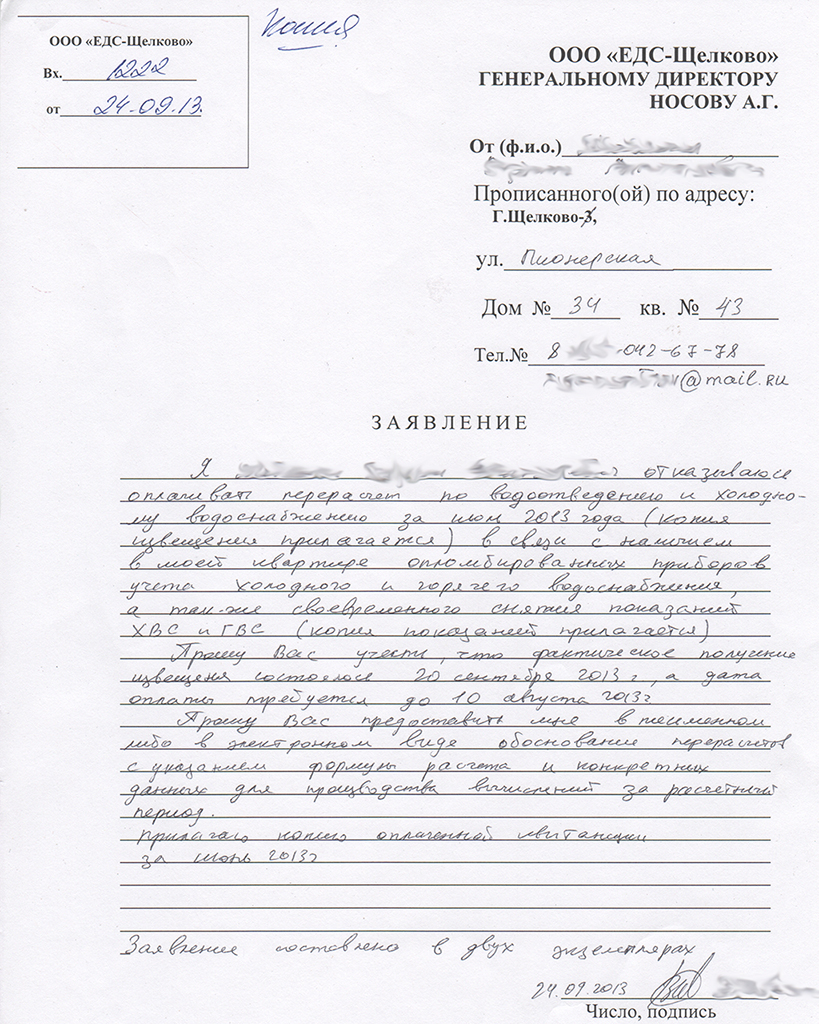 ООО «ЕДС-Щелково»
Вх. 1222
от 24.09.13.
Копия
ООО «ЕДС-Щелково»
ГЕНЕРАЛЬНОМУ ДИРЕКТОРУ
НОСОВУ А.Г.
От (ф.и.о.)
Прописанного(ой) по адресу:
Г.Щелково-3,
ул. Пионерская
Дом № 34 кв. № 43
Тел.№ 8 -042-67-78
@mail.ru
ЗАЯВЛЕНИЕ
Я отказываюсь
оплачивать перерасчет по водоотведению и холодно-
му водоснабжению за июнь 2013 года (копия
извещения прилагается) в связи с наличием
в моей квартире опломбированных приборов
учета холодного и горячего водоснабжения,
а так-же своевременного снятия показаний
ХВС и ГВС (копия показаний прилагается)
Прошу Вас учесть, что фактическое получение
извещеня состоялось 20 сентября 2013 г, а дата
оплаты требуется до 10 августа 2013г
Прошу Вас предоставить мне в писменном
либо в электронном виде обоснование перерасчетов
с указанием формулы расчета и конкретных
данных для производства вычислений за расчетный
период.
прилагаю копию оплаченной квитанции
за июнь 2013г
Заявление составлено в двух экземплярах
24.09.2013
Число, подпись